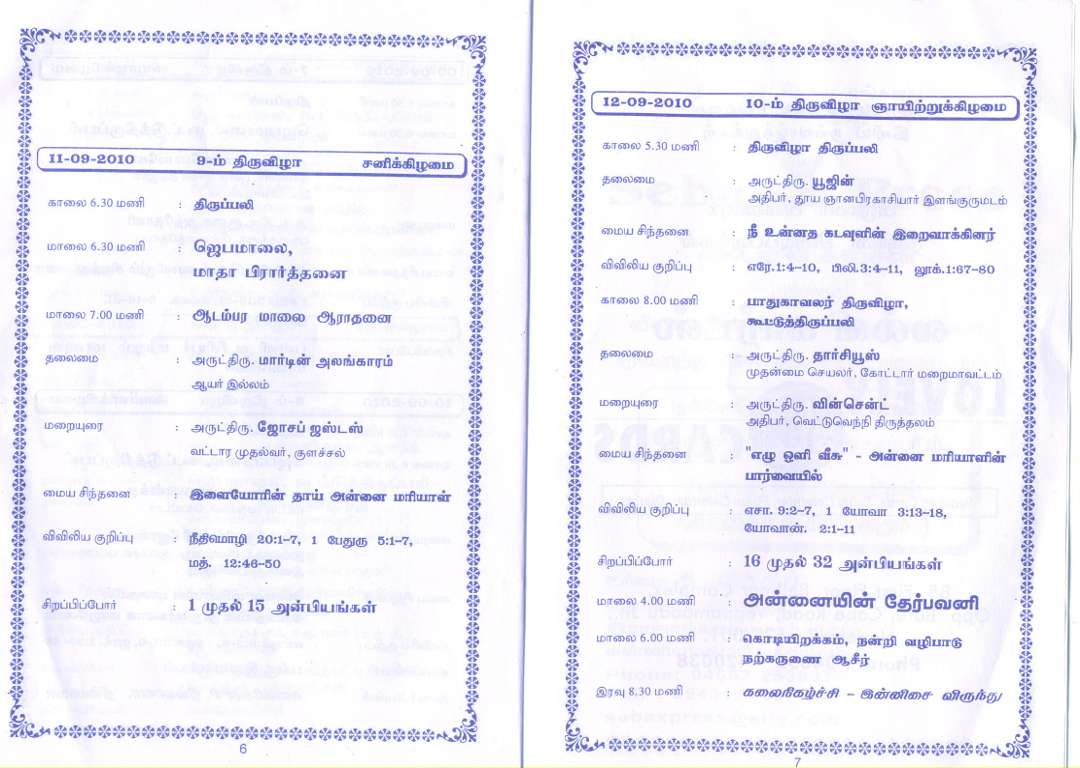 11-09-2010 9-ம் திருவிழா சனிக்கிழமை
காலை 6.30 மணி : திருப்பலி
மாலை 6.30 மணி : ஜெபமாலை,
மாதா பிரார்த்தனை
மாலை 7.00 மணி : ஆடம்பர மாலை ஆராதனை
தலைமை : அருட்திரு. மார்டின் அலங்காரம்
ஆயர் இல்லம்
மறையுரை : அருட்திரு. ஜோசப் ஜஸ்டஸ்
வட்டார முதல்வர், குளச்சல்
மைய சிந்தனை : இளையோரின் தாய் அன்னை மரியாள்
விவிலிய குறிப்பு : நீதிமொழி 20:1-7, 1 பேதுரு 5:1-7,
மத். 12:46-50
சிறப்பிப்போர் : 1 முதல் 15 அன்பியங்கள்
6
12-09-2010 10-ம் திருவிழா ஞாயிற்றுக்கிழமை
காலை 5.30 மணி : திருவிழா திருப்பலி
தலைமை : அருட்திரு. யூஜின்
அதிபர், தூய ஞானபிரகாசியார் இளங்குருமடம்
மைய சிந்தனை : நீ உன்னத கடவுளின் இறைவாக்கினர்
விவிலிய குறிப்பு : எரே.1:4-10, பிலி.3:4-11, லூக்.1:67-80
காலை 8.00 மணி : பாதுகாவலர் திருவிழா,
கூட்டுத்திருப்பலி
தலைமை : அருட்திரு. தார்சியூஸ்
முதன்மை செயலர், கோட்டார் மறைமாவட்டம்
மறையுரை : அருட்திரு. வின்சென்ட்
அதிபர், வெட்டுவெந்நி திருத்தலம்
மைய சிந்தனை : "எழு ஒளி வீசு" - அன்னை மரியாளின்
பார்வையில்
விவிலிய குறிப்பு : எசா. 9:2-7, 1 யோவா 3:13-18,
யோவான். 2:1-11
சிறப்பிப்போர் : 16 முதல் 32 அன்பியங்கள்
மாலை 4.00 மணி : அன்னையின் தேர்பவனி
மாலை 6.00 மணி : கொடியிறக்கம், நன்றி வழிபாடு
நற்கருணை ஆசீர்
இரவு 8.30 மணி : கலைநிகழ்ச்சி - இன்னிசை விருந்து
7